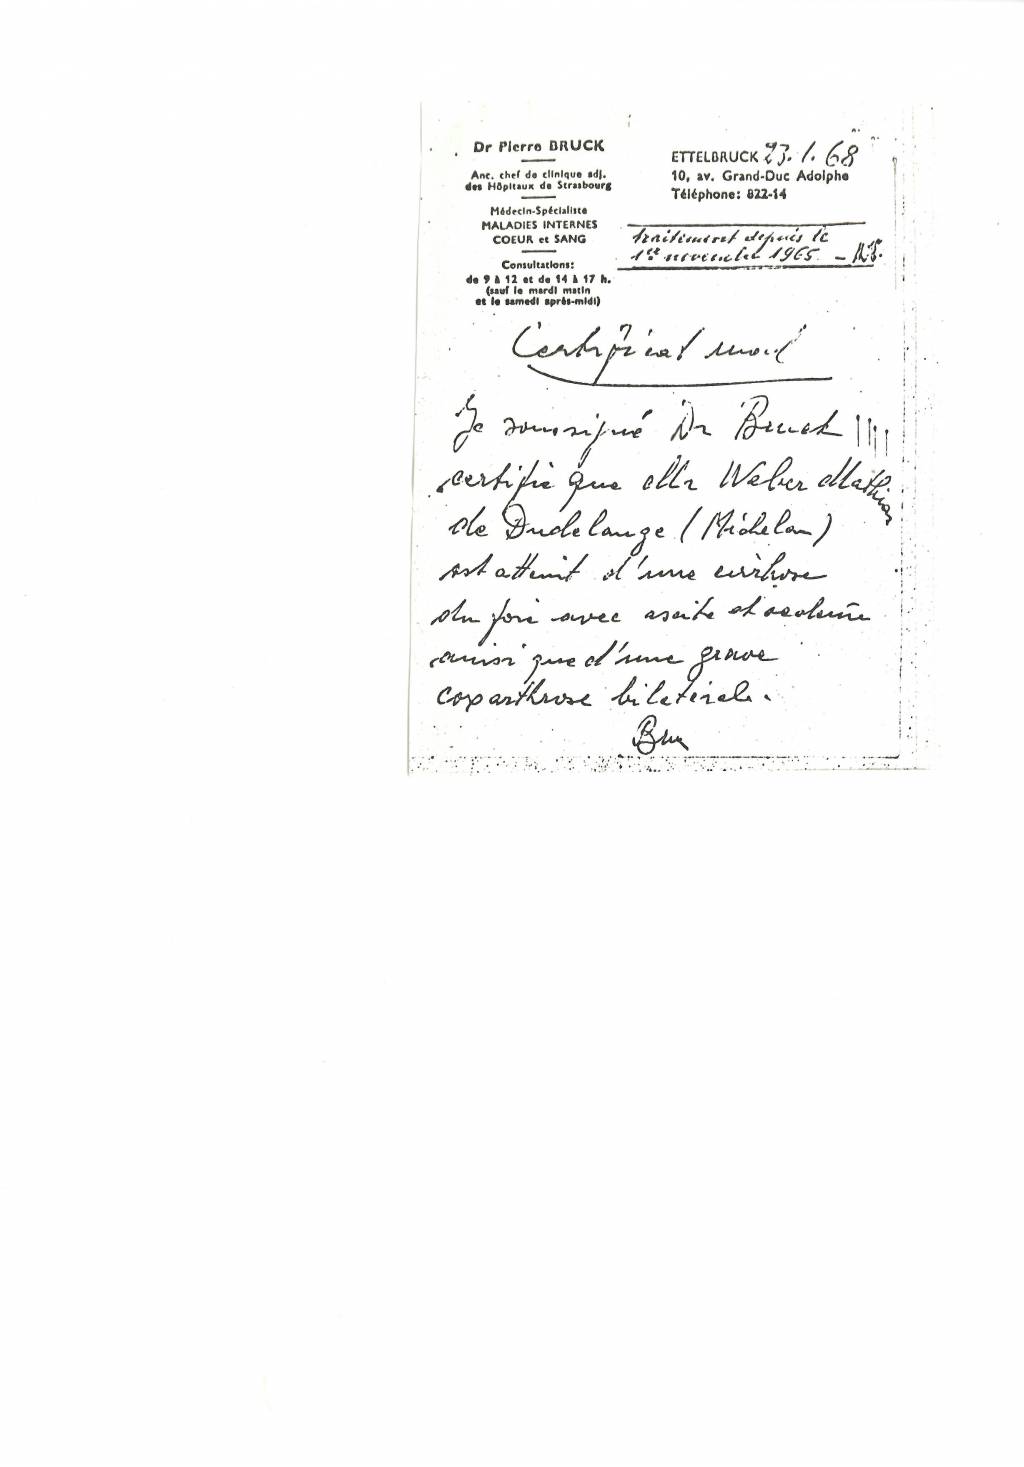 Dr Pierre BRUCK
Anc. chef de clinique adj.
des Hôpitaux de Strasbourg
Médecin-Spécialiste
MALADIES INTERNES
COEUR et SANG
Consultations:
de 9 à 12 et de 14 à 17 h.
(sauf le mardi matin
et le samedi après-midi)
ETTELBRUCK 23.1.68
10, av. Grand-Duc Adolphe
Téléphone: 822-14
traitement depuis le
1er novembre 1965. –
Certificat med
Je soussigné Dr Bruck
certifie que Mr Weber Mathias
de Dudelange (Michelan)
est atteint d'une cirrhose
du foie avec ascite et oedeme
ainsi que d'une grave
coxarthrose bilatérale.